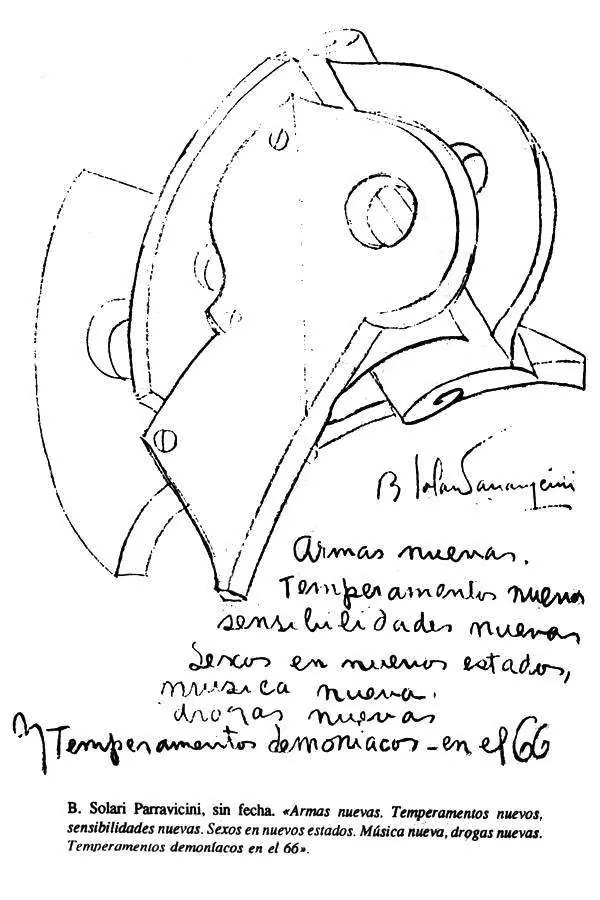 B Solari Parravicini
Armas nuevas.
Temperamentos nuevos
sensibilidades nuevas
Sexos en nuevos estados,
musica nueva.
drogas nuevas
y Temperamentos demoniacos - en el 66
B. Solari Parravicini, sin fecha. «Armas nuevas. Temperamentos nuevos,
sensibilidades nuevas. Sexos en nuevos estados. Música nueva, drogas nuevas.
Temperamentos demoníacos en el 66».